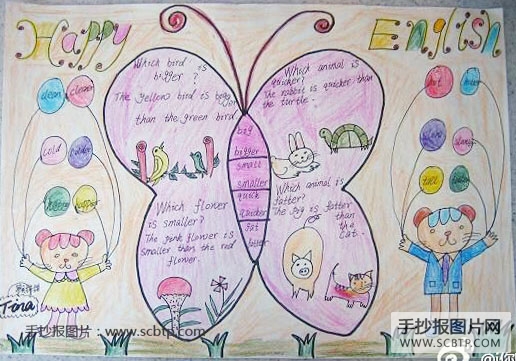 Happy English
Which bird is
bigger ?
The yellow bird is bigger
than the green bird.
Which animal is
quicker?
The rabbit is quicker than
the turtle.
Which flower
is smaller?
The pink flower is
smaller than the red
flower.
Which animal is
fatter?
The pig is fatter
than
the
cat.
big
bigger
small
smaller
quick
quicker
fat
fatter
clean
cleaner
cold
colder
happy
happier
hot
tall
Tina
手抄报图片:www.scbtp.com
手抄报图片网
www.scbtp.com